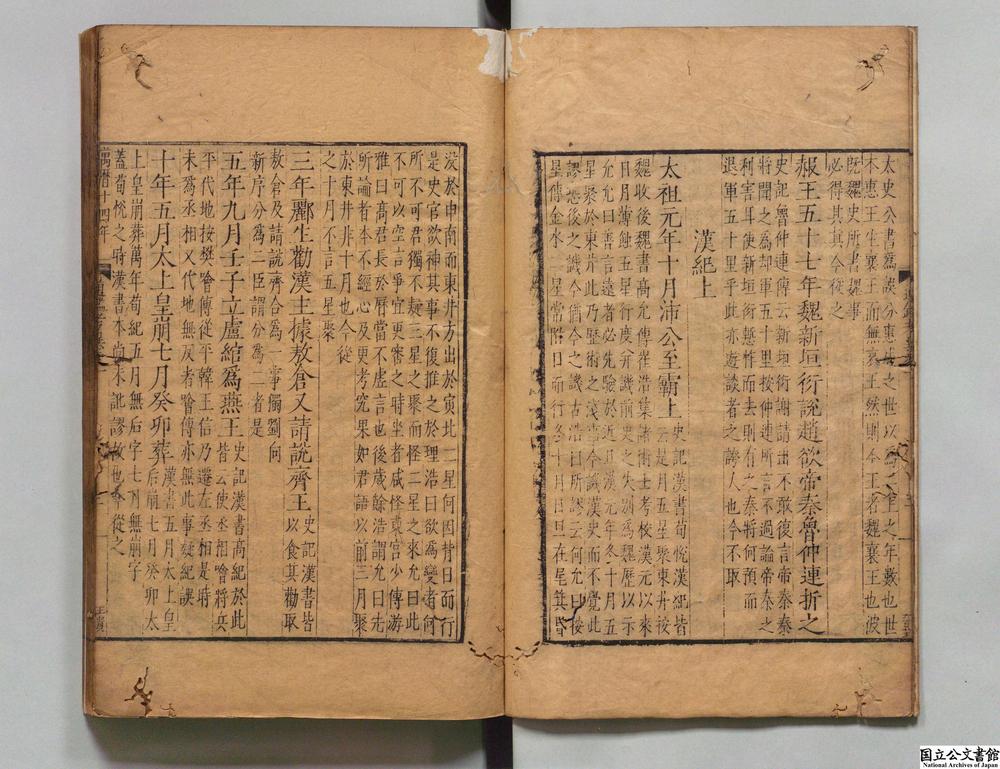 太史公書爲誤分惠成之世以爲二王之年數也世
本惠王生襄王而無哀王然則今王者魏襄王也彼
既魏史所書魏事
必得其真今從之
赧王五十七年魏新垣衍說趙欲帝秦魯仲連折之
史記魯仲連傳云新垣衍謝請出不敢復言帝秦秦
將聞之爲却軍五十里按仲連所言不過論帝秦之
利害耳使新垣衍慙怍而去則有之秦將何預而
退軍五十里乎此亦遊談者之誇人也今不取
漢紀上
太祖元年十月沛公至霸上史記漢書荀悅漢紀皆
云是月五星聚東井按
魏收後魏書高允傳崔浩集諸術士考校漢元以來
日月薄蝕五星行度并譏前史之失別爲魏曆以示
允允曰善言遠者必先驗於近且漢元年冬十月五
星聚於東井此乃歷術之淺事今譏漢史而不覺此
謬恐後之譏今猶今之譏古浩曰所謬云何允曰按
星傳金水二星常附日而行冬十月日旦在尾箕昏
没於申南而東井方出於寅北二星何因背日而行
是史官欲神其事不復推之於理浩曰欲爲變者何
所不可君獨不疑三星之聚而怪二星之來允曰此
不可以空言爭宜更審之時坐者咸怪東宮少傅游
雅曰高君長於曆當不虛言也後歲餘浩謂允曰先
所論者本不經心及更考究果如君語以前三月聚
於東井非十月也今從
之十月不言五星聚
三年酈生勸漢王據敖倉又請說齊王史記漢書皆
以食其勸取
敖倉及請說齊合爲一事獨劉向
新序分爲二臣謂分爲二者是
五年九月壬子立盧綰爲燕王史記漢書高紀於此
皆云使丞相噲將兵
平代地按樊噲傳從平韓王信乃遷左丞相是時
未爲丞相又代地無反者噲傳亦無此事疑紀誤
十年五月太上皇崩七月癸卯葬漢書五月太上皇
后崩七月癸卯太
上皇崩葬萬年荀紀五月無后字七月無崩字
蓋荀悅之時漢書本尚未訛謬故也今從之
萬曆十四年
国立公文書館
National Archives of Japan